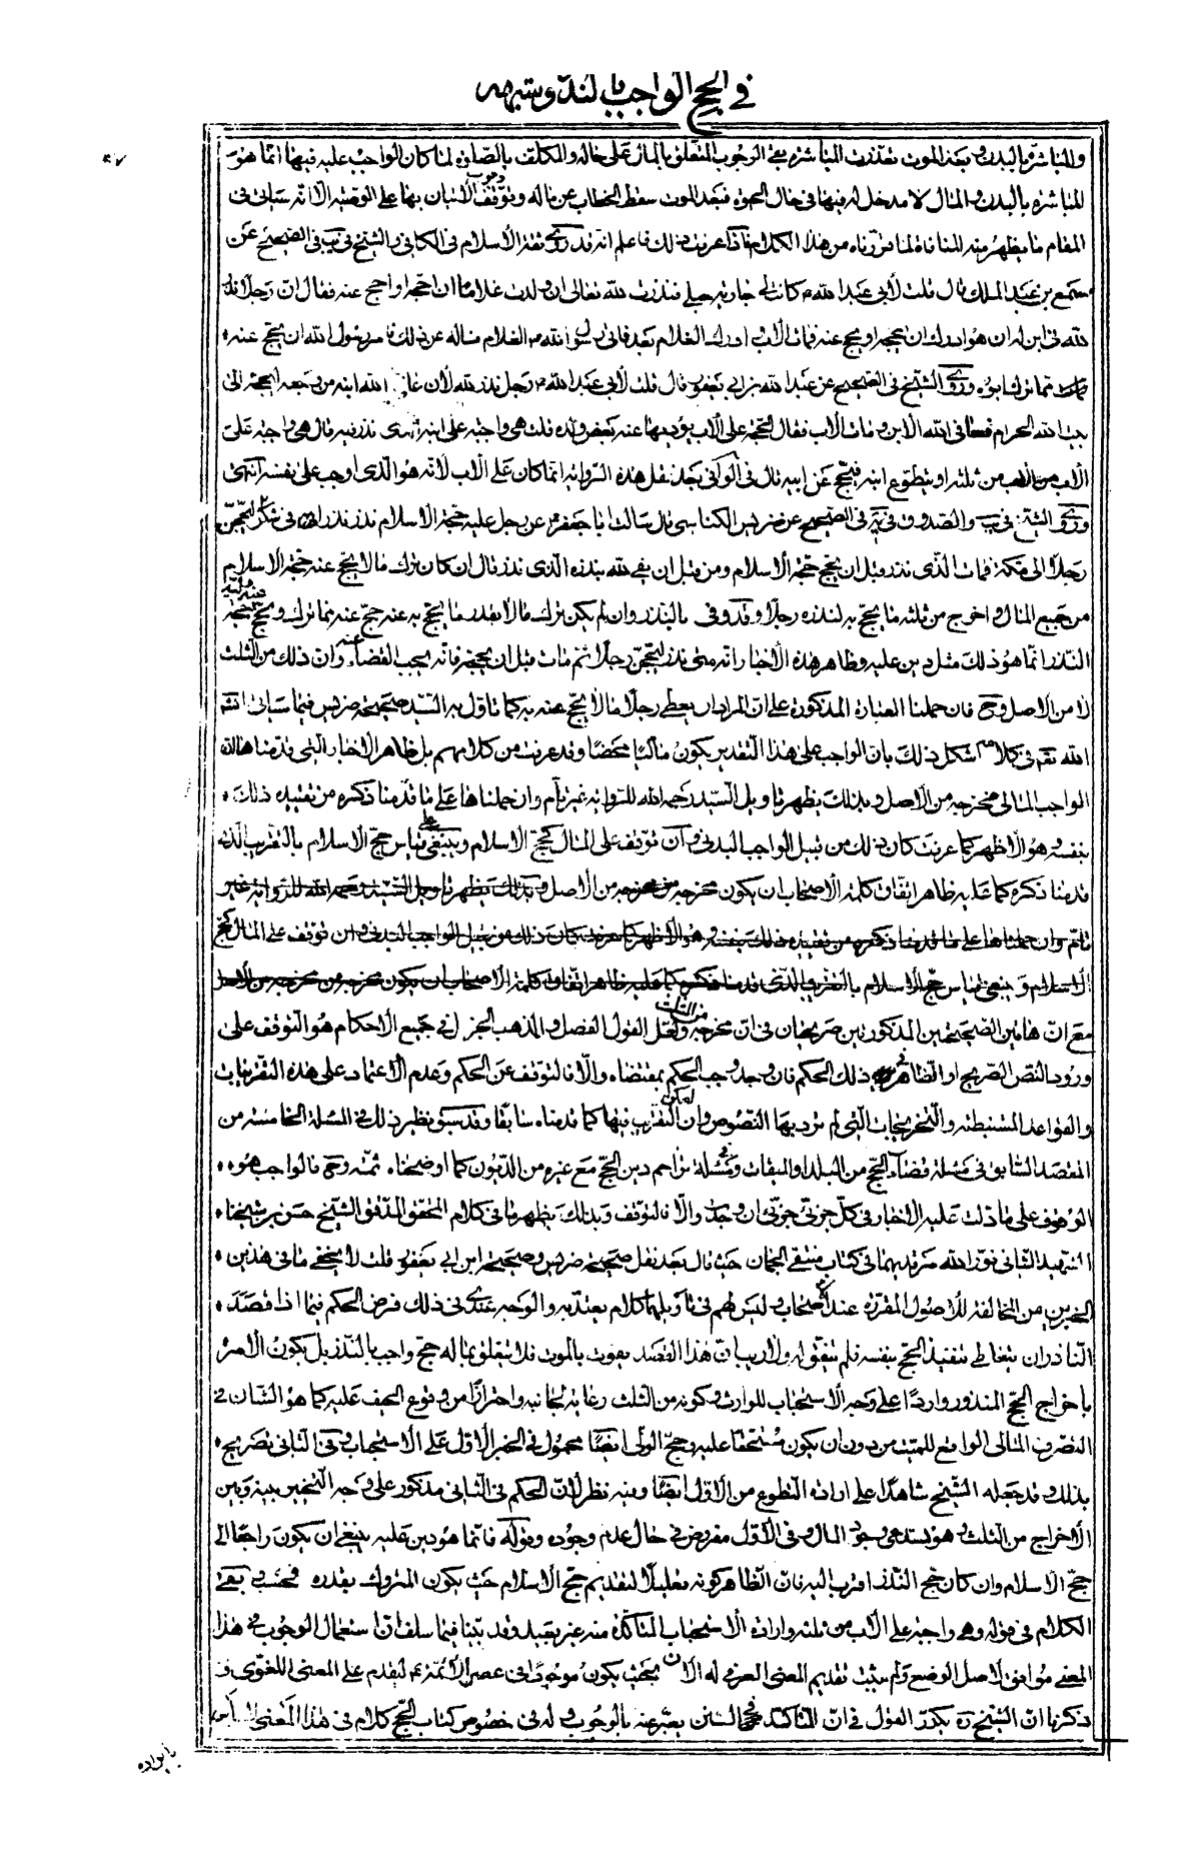 في الحج الواجب بالنذر وشبهه
والمباشرة بالبدن وبعد الموت تعذرت المباشرة بقي الوجوب المتعلق بالمال على حاله والمكلف بالصلوة لما كان الواجب عليه فيها انما هو
المباشرة بالبدن والمال لا مدخل له فيها في حال الحيوة فبعد الموت سقط الخطاب عن ماله وتوقف وجوب الاتيان بها على الوصية الا انه سيأتي في
المقام ما يظهر منه المنافاة لما قررناه من هذا الكلام فاذا عرفت ذلك فاعلم انه قد روى ثقة الاسلام في الكافي والشيخ في يب في الصحيح عن
مسمع بن عبد الملك قال قلت لأبي عبد الله ع كانت لي جارية حبلى فنذرت لله تعالى ان ولدت غلاما ان احجه او احج عنه فقال ان رجلا نذر
لله في ابن له ان هو ادرك ان يحجه او يحج عنه فمات الأب وادرك الغلام بعد فاتى رسول الله ص الغلام فسأله عن ذلك فامر رسول الله ان يحج عنه
مما ترك ابوه وروى الشيخ في الصحيح عن عبد الله بن ابي يعفور قال قلت لأبي عبد الله ع رجل نذر لله لأن عافى الله ابنه من وجعه ليحجنه الى
بيت الله الحرام فعافى الله الابن ومات الأب فقال الحجة على الأب يؤديها عنه بعض ولده قلت هي واجبة على ابنه الذي نذر فيه قال هي واجبة على
الأب من ثلثه او يتطوع ابنه فيحج عن ابيه قال في الوافي بعد نقل هذه الرواية انما كان على الاب لأنه هو الذي اوجب على نفسه انتهى
وروى الشيخ في يب والصدوق في يه في الصحيح عن ضريس الكناسي قال سالت ابا جعفر ع عن رجل عليه حجة الاسلام نذر نذرا في شكر ليحجن
رجلا الى مكة فمات الذي نذر قبل ان يحج حجة الاسلام ومن قبل ان يفي لله بنذره الذي نذر قال ان كان ترك مالا يحج عنه حجة الاسلام
من جميع المال واخرج من ثلثه ما يحج به لنذره رجلا وقد وفى بالنذر وان لم يكن ترك مالا بقدر ما يحج به عنه حج عنه بما ترك ويحج عنه وليه حجة
النذر انما هو ذلك مثل دين عليه وظاهر هذه الاخبار انه متى نذر ليحجن رجلا ثم مات قبل ان يحجه فانه يجب القضاء عنه وان ذلك من الثلث
لا من الاصل وح فان حملنا العبارة المذكورة على ان المراد ان يعطي رجلا مالا يحج عنه به كما تأول به السيد صحيحة ضريس فيما سيأتي انشاء
الله تعم في كلامه اشكل ذلك بان الواجب على هذا التقدير يكون ماليا محضا وقد عرفت من كلامهم بل ظاهر الاخبار التي قدمناها ان
الواجب المالي مخرجه من الاصل وبذلك يظهر تأويل السيد رحمه الله للرواية غير تام وان حملناها على ما قدمنا ذكره من تقييده ذلك
بنفسه وهو الاظهر كما عرفت كان ذلك من قبيل الواجب البدني وان توقف على المال كحج الاسلام وينبغي على قياس حج الاسلام بالتقريب الذي
قدمنا ذكره كما عليه ظاهر اتفاق كلمة الاصحاب ان يكون مخرجه من مخرجه من الاصل وبذلك يظهر تأويل السيد رحمه الله للرواية غير
تام وان حملناها على ما قدمنا ذكره من تقييده ذلك بنفسه وهو الأظهر كما عرفت كان ذلك من قبيل الواجب البدني وان توقف على المال كحج
الاسلام وينبغي قياس حج الاسلام بالتقريب الذي قدمنا ذكره كما عليه ظاهر اتفاق كلمة الاصحاب ان يكون مخرجه من مخرجه من الأصل
مع ان هاتين الصحيحتين المذكورتين صريحتان في ان مخرجه من الثلث ولعل القول الفصل والمذهب الجزل في جميع الاحكام هو التوقف على
ورود النص الصريح او الظاهر في ذلك الحكم فان وجد وجب الحكم بمقتضاه والا فالتوقف عن الحكم وعدم الاعتماد على هذه التقريبات
والقواعد المستنبطة والتخريجات التي لم ترد بها النصوص وان امكن التقريب فيها كما قدمناه سابقا وقد سبق نظير ذلك في المسئلة الخامسة من
المقصد السابق في مسئلة قضاء الحج من البلد او الميقات وفي مسئلة تزاحم دين الحج مع غيره من الديون كما اوضحناه ثمة وح فالواجب هو
الوقوف على ما دلت عليه الاخبار في كل جزئي جزئي ان وجدت والا فالتوقف وبذلك يظهر ما في كلام المحقق المدقق الشيخ حسن بن شيخنا
الشهيد الثاني نور الله مرقديهما في كتاب منتقى الجمان حيث قال بعد نقل صحيحة ضريس وصحيحة ابن ابي يعفور قلت لا يخفى ما في هذين
الخبرين من المخالفة للاصول المقررة عند الاصحاب وليس لهم في تأويلهما كلام يعتد به والوجه عندي في ذلك فرض الحكم فيما اذا قصد
الناذر ان يتعاطى تنفيذ الحج بنفسه فلم يتفق له ولا ريب ان هذا القصد يفوت بالموت فلا يتعلق بماله حج واجب بالنذر بل يكون الأمر
باخراج الحج المنذور واردا على وجه الاستحباب للوارث وكونه من الثلث رعاية لجانبه واحترازا من وقوع الحيف عليه كما هو الشان في
التصرف المالي الواقع للميت من دون ان يكون مستحقا عليه وحج الولي ايضا محمول في الخبر الأول على الاستحباب وفي الثاني تصريح
بذلك وقد جعله الشيخ شاهدا على ارادة التطوع من الأول ايضا وفيه نظر لان الحكم في الثاني مذكور على وجه التخيير بينه وبين
الأخراج من الثلث وهو يستدعي وجود المال وفي الأول مفروض في حال عدم وجوده وقوله فانما هو دين عليه ينبغي ان يكون راجعا الى
حج الاسلام وان كان حج النذر اقرب اليه فان الظاهر كونه تعليلا لتقديم حج الاسلام حيث يكون المتروك بقدره فحسب ويبقى
الكلام في قوله وهي واجبة على الأب من ثلثه وارادة الاستحباب المتأكد منه غير بعيد وقد بينا فيما سلف ان استعمال الوجوب في هذا
المعنى موافق لاصل الوضع ولم يثبت تقديم المعنى العرفي له الآن بحيث يكون موجودا في عصر الأئمة ع ليقدم على المعنى اللغوي و
ذكرنا ان الشيخ ره يكرر القول في ان المتأكد في السنن يعبر عنه بالوجوب وله في خصوص كتاب الحج كلام في هذا المعنى